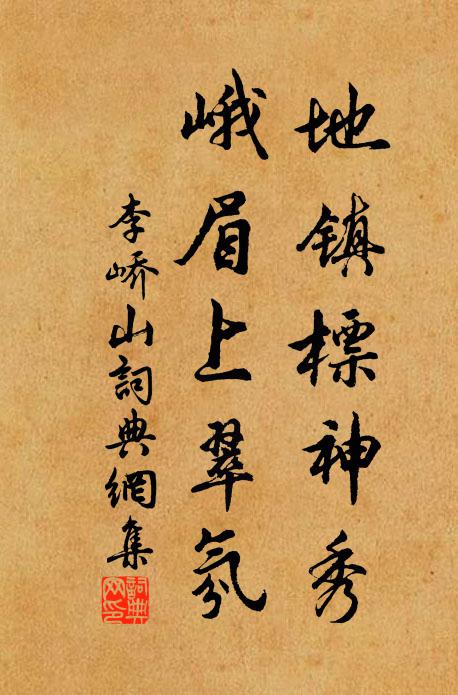 地镇標神秀
峨眉上翠氛
李峤山詞典網集
詞典网印